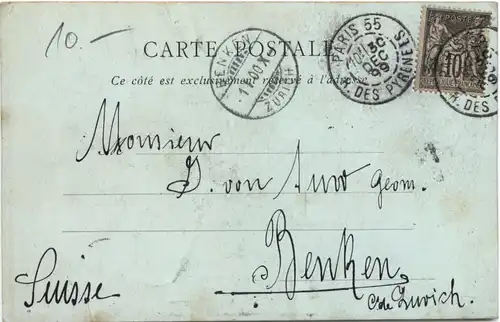 10.-
CARTE POSTALE
Ce côté est exclusivement réservé à l'adresse.
BENKEN
ZÜRICH
PARIS 55
R. DES PYRENEES
POSTE
10
Monsieur
D. von Geom.
Benken
Cde Zurich.
Suisse